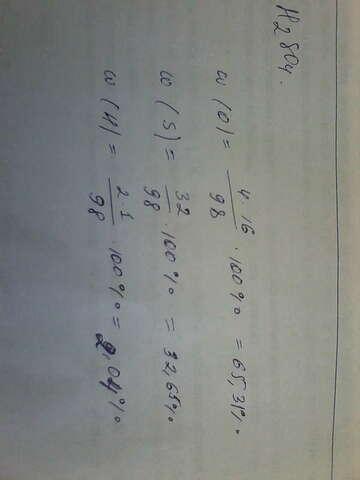 H2SO4.
ω (O) = 4·16/98 · 100% = 65,31%
ω (S) = 32/98 · 100% = 32,65%
ω (H) = 2·1/98 · 100% = 2,04%